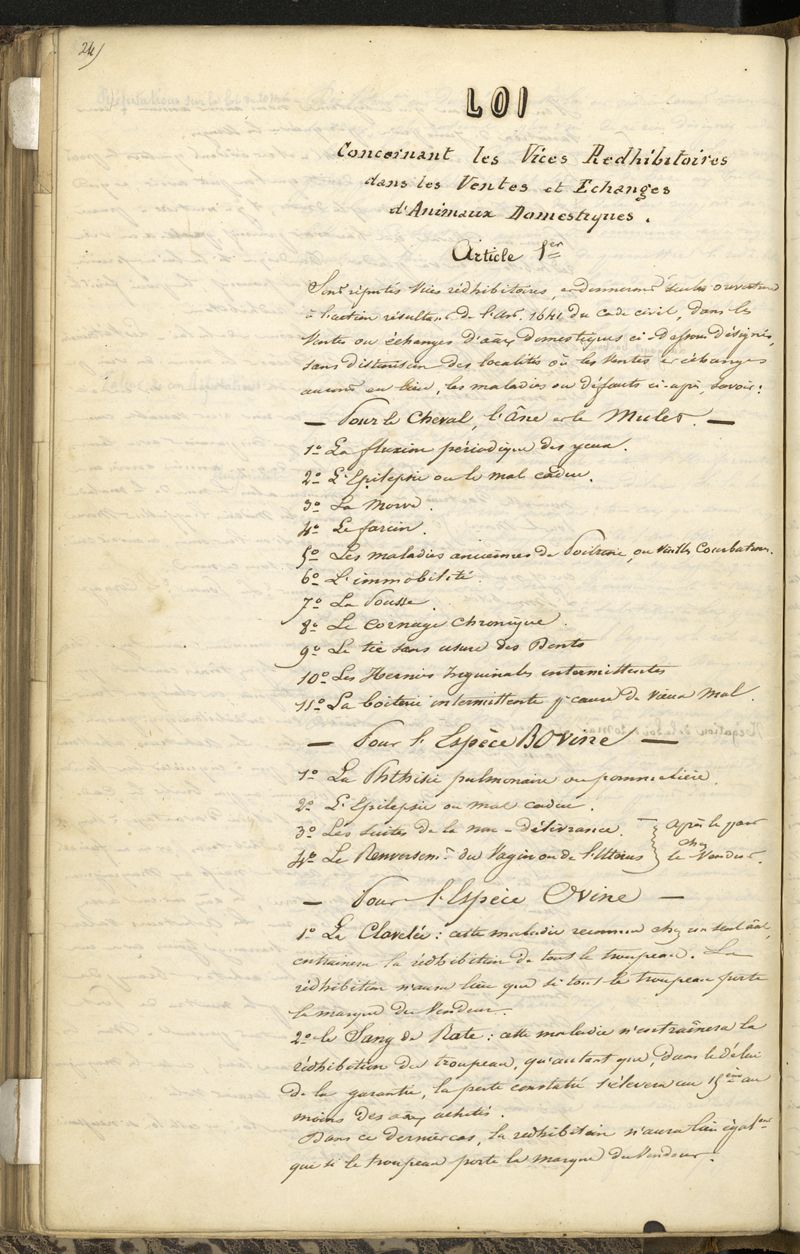 24)
LOI
Concernant les Vices Redhibitoires
dans les Ventes et Echanges
d'Animaux Domestiques.
Article 1er
Sont réputés Vices rédhibitoires, et donneront seuls ouverture
à l'action résultant de l'Art. 1641 du Code civil, dans les
Ventes ou échanges d'aux domestiques ci-dessous désignés,
sans distinction des localités où les Ventes et échanges
auront eu lieu, les maladies ou défauts ci-apr, savoir:
— Pour le Cheval, l'âne et le Mulet. —
1o La fluxion périodique des yeux.
2o L'Epilepsie ou le mal caduc.
3o La Morve.
4o Le farcin.
5o Les maladies anciennes de Poitrine, ou vieilles Courbatures.
6o L'immobilité.
7o La Pousse.
8o Le Cornage Chronique.
9o Le tic sans usure des Dents
10o Les Hernies Inguinales intermittentes
11o La boiterie intermittente pr cause de vieux Mal.
— Pour l'Espèce Bovine —
1o La Phthisie pulmonaire ou pommelière.
2o L'Epilepsie ou mal caduc.
3o Les suites de la non-délivrance. } après le part
4o Le Renversemt du Vagin ou de l'Utérus } chez le Vendeur.
— Pour l'Espèce Ovine —
1o La Clavelée: cette maladie reconnue chez un seul anl,
entrainera la rédhibition de tout le troupeau. La
rédhibition n'aura lieu que si tout le troupeau porte
la marque du Vendeur.
2o le Sang de Rate: cette maladie n'entraînera la
rédhibition du troupeau, qu'autant que, dans le délai
de la garantie, la perte constatée s'élevera au 15ème au
moins des aux achetés.
Dans ce dernier cas, la redhibition n'aura lieu égalemt
que si le troupeau porte la marque du Vendeur.